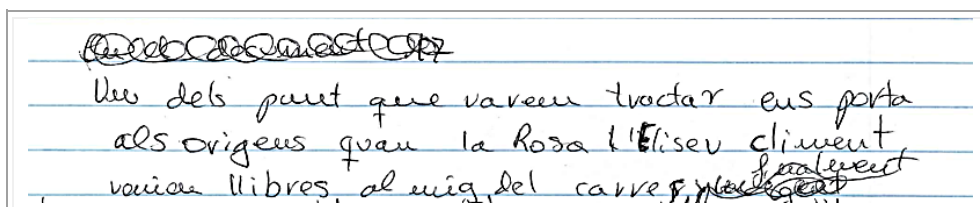 Un dels punt que varem tractar ens porta
als origens quan la Rosa l'Eliseu climent,
venien llibres al mig del carrer, finalment